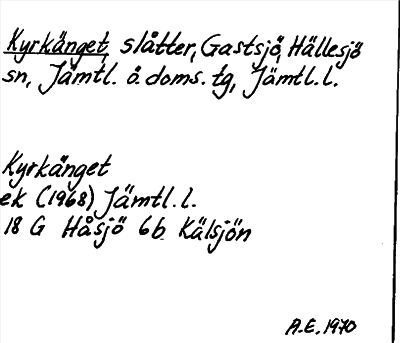 Kyrkänget, slåtter, Gastsjö, Hällesjö
sn, Jämtl. ö. doms. tg, Jämtl. l.
Kyrkänget
ek (1968) Jämtl. l.
18 G Håsjö 6b Kälsjön
A.E. 1970